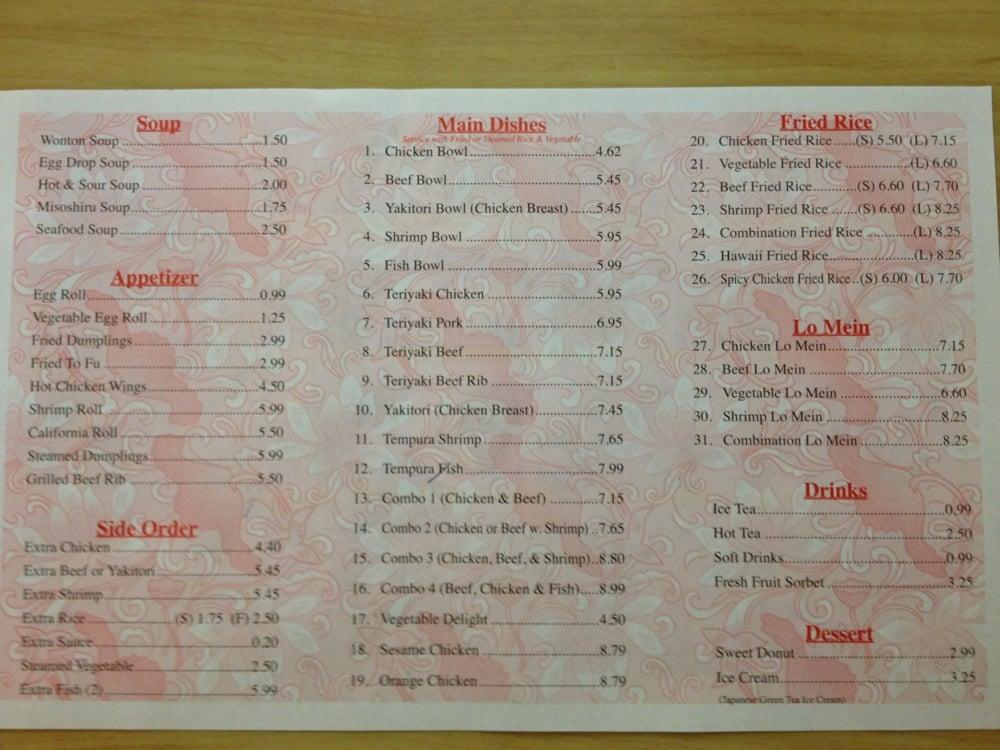 Soup
Wonton Soup 1.50
Egg Drop Soup 1.50
Hot & Sour Soup 2.00
Misoshiru Soup 1.75
Seafood Soup 2.50
Appetizer
Egg Roll 0.99
Vegetable Egg Roll 1.25
Fried Dumplings 2.99
Fried To Fu 2.99
Hot Chicken Wings 4.50
Shrimp Roll 5.99
California Roll 5.50
Steamed Dumplings 5.99
Grilled Beef Rib 5.50
Side Order
Extra Chicken 4.40
Extra Beef or Yakitori 5.45
Extra Shrimp 5.45
Extra Rice (S) 1.75 (F) 2.50
Extra Sauce 0.20
Steamed Vegetable 2.50
Extra Fish (2) 5.99
Main Dishes
Service with Fried or Steamed Rice & Vegetable
1. Chicken Bowl 4.62
2. Beef Bowl 5.45
3. Yakitori Bowl (Chicken Breast) 5.45
4. Shrimp Bowl 5.95
5. Fish Bowl 5.99
6. Teriyaki Chicken 5.95
7. Teriyaki Pork 6.95
8. Teriyaki Beef 7.15
9. Teriyaki Beef Rib 7.15
10. Yakitori (Chicken Breast) 7.45
11. Tempura Shrimp 7.65
12. Tempura Fish 7.99
13. Combo 1 (Chicken & Beef) 7.15
14. Combo 2 (Chicken or Beef w. Shrimp) 7.65
15. Combo 3 (Chicken, Beef, & Shrimp) 8.80
16. Combo 4 (Beef, Chicken & Fish) 8.99
17. Vegetable Delight 4.50
18. Sesame Chicken 8.79
19. Orange Chicken 8.79
Fried Rice
20. Chicken Fried Rice (S) 5.50 (L) 7.15
21. Vegetable Fried Rice (L) 6.60
22. Beef Fried Rice (S) 6.60 (L) 7.70
23. Shrimp Fried Rice (S) 6.60 (L) 8.25
24. Combination Fried Rice (L) 8.25
25. Hawaii Fried Rice (L) 8.25
26. Spicy Chicken Fried Rice (S) 6.00 (L) 7.70
Lo Mein
27. Chicken Lo Mein 7.15
28. Beef Lo Mein 7.70
29. Vegetable Lo Mein 6.60
30. Shrimp Lo Mein 8.25
31. Combination Lo Mein 8.25
Drinks
Ice Tea 0.99
Hot Tea 2.50
Soft Drinks 0.99
Fresh Fruit Sorbet 3.25
Dessert
Sweet Donut 2.99
Ice Cream 3.25
(Japanese Green Tea Ice Cream)